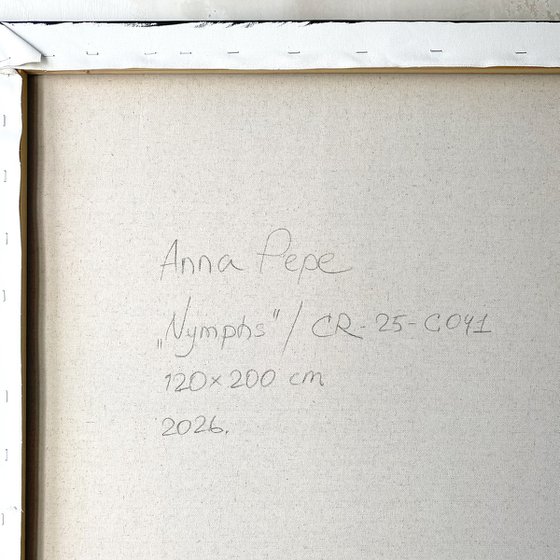 Anna Pepe
„Nymphs" / CR-25-C041
120x200 cm
2026.